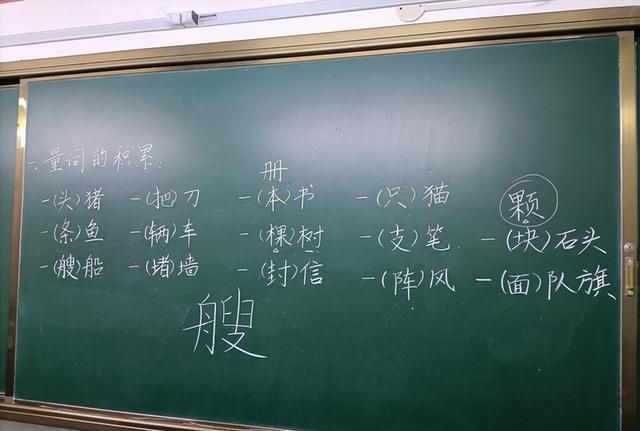 一、量词的积累：
册
一(头)猪 一(把)刀 一(本)书 一(只)猫 颗
一(条)鱼 一(辆)车 一(棵)树 一(支)笔 一(块)石头
一(艘)船 一(堵)墙 一(封)信 一(阵)风 一(面)队旗
艘